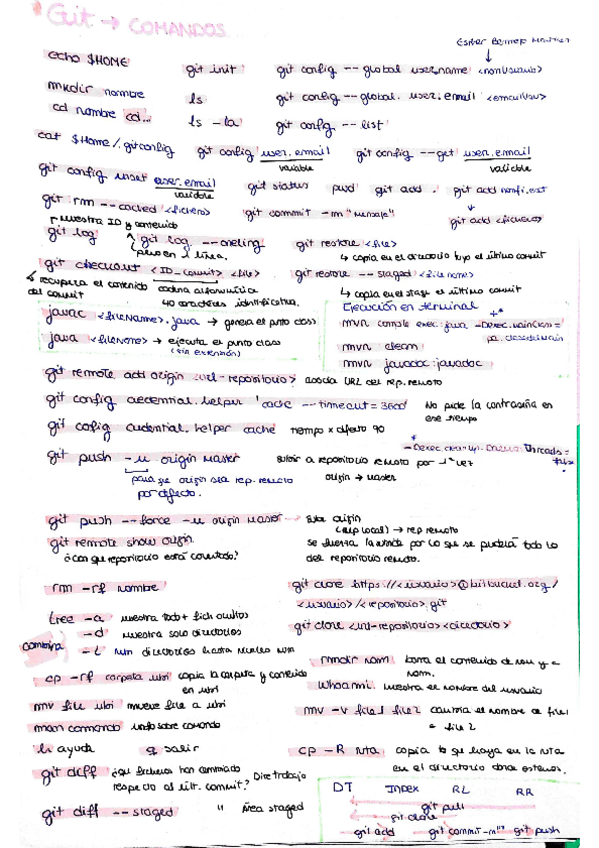 Git → COMANDOS
echo $HOME
git init
git config --global user.name <nomUsuario>
mkdir nombre
ls
git config --global. user.email <emailUsu>
cd nombre cd...
ls -la
git config --list
cat $Home/.gitconfig
git config user.email
git config --get user.email
variable
variable
git config unset user.email
variable
git status
pwd
git add .
git add nomfi.ext
git rm --cached <fichero>
git commit -m "mensaje"
git add <ficheros>
muestra ID y contenido
git log
git log --oneline
pero en 1 linea.
git restore <file>
↳ copia en el directorio tujo el último commit
git checkout <ID_commit> <file>
git restore --staged <filename>
recupera el contenido
del commit
cadena alfanumérica
40 caracteres identificativa.
↳ copia en el stage el último commit
javac <fileName>.java → genera el punto class
java <fileName> → ejecuta el punto class
(sin extensión)
Ejecución en terminal
mvn compile exec:java -Dexec.mainClass=
mvn clean
mvn javadoc:javadoc
git remote add origin <url-repositorio> asocia URL del rep. remoto
git config credential.helper 'cache --timeout=3600'
No pide la contraseña en
ese tiempo
git config credential.helper cache tiempo x defecto 90
git push -u origin master
subir a repositorio remoto por 1ª vez
para que origin sea rep. remoto
por defecto.
origin → master
git push --force -u origin master → Esta origin
(rep local) → rep remoto
git remote show origin
se fuerza la subida por lo que se perderá todo lo
del repositorio remoto.
¿Con que repositorio está conectado?
rm -rf nombre
git clone https://<usuario>@bitbucket.org/
<usuario>/<repositorio>.git
tree -a muestra todo + fich ocultos
-d muestra solo directorios
git clone <url-repositorio> <directorio>
combina
-L num directorios hasta niveles num
rmdir nom. borra el contenido de nom y
nom.
cp -rf carpeta ubi copia la carpeta y contenido
en ubi
whoami. muestra el nombre del usuario
mv file ubi mueve file a ubi
mv -v file1 file2 cambia el nombre de file1
a file2
man comando info sobre comando
h ayuda
q salir
cp -R ruta copia lo que haya en la ruta
en el directorio donde estemos.
git diff ¿qué ficheros han cambiado
respecto al últ. commit? Dire trabajo
git diff --staged " área staged
DT INDEX RL RR
git pull
git clone
git add git commit -m"" git push